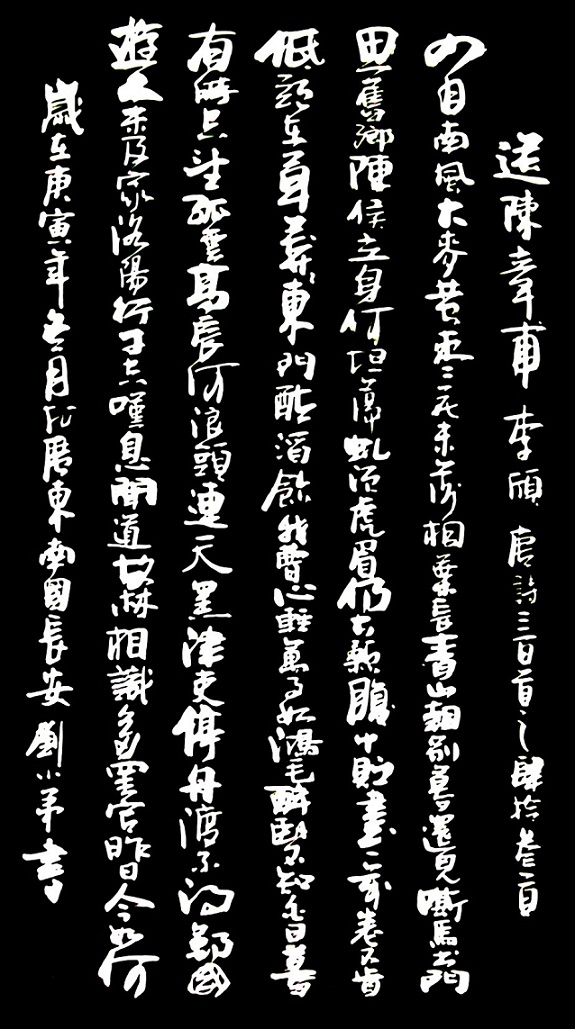 送陳章甫 李頎 唐詩三百首之肆拾叁首
四月南風大麥黃棗花未落桐葉長青山朝別暮還見嘶馬出門
思舊鄉陳侯立身何坦蕩虬須虎眉仍大顙腹中貯書一萬卷不肯
低頭在草莽東門酤酒飲我曹心輕萬事如鴻毛醉臥不知白日暮
有時空望孤雲高長河浪頭連天黑津吏停舟渡不得鄭國
遊人未及家洛陽行子空嘆息聞道故林相識多罷官昨日今如何
歲在庚寅年五月於廣東南國長安劉小弟書